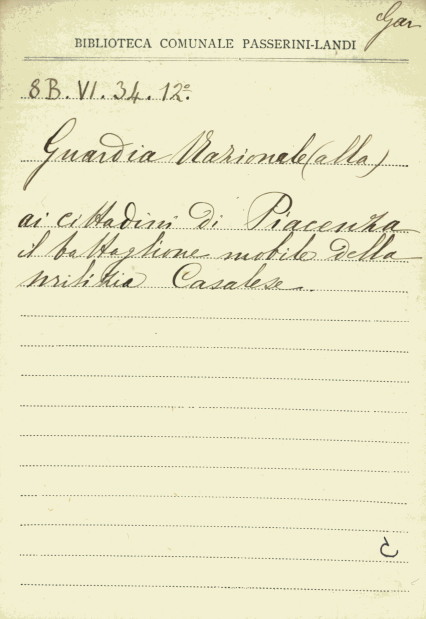 Gar
BIBLIOTECA COMUNALE PASSERINI-LANDI
8B.VI.34.12º.
Guardia Nazionale (alla)
ai cittadini di Piacenza
il battaglione mobile della
milizia Casalese.